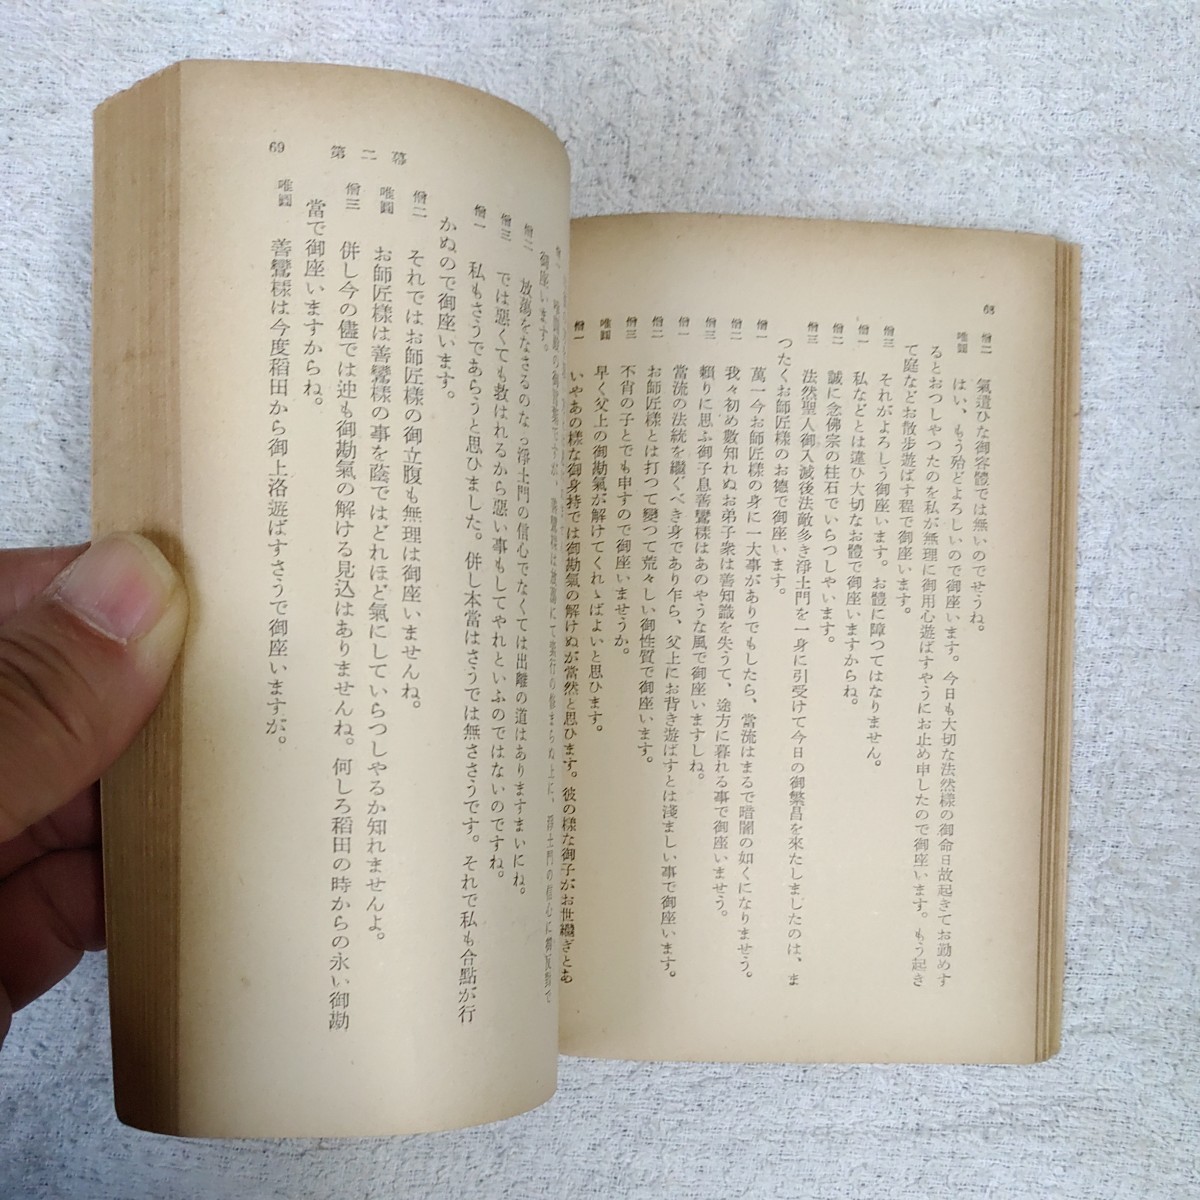 68
僧二　氣遣ひな御容體では無いのでせうね。
唯圓　はい、もう殆どよろしいので御座います。今日も大切な法然樣の御命日故起きてお勤めす
るとおつしやつたのを私が無理に御用心遊ばすやうにお止め申したので御座います。もう起き
て庭などお散歩遊ばす程で御座います。
僧三　それがよろしう御座います。お體に障つてはなりません。
僧一　私などとは違ひ大切なお體で御座いますからね。
僧二　誠に念佛宗の柱石でいらつしやいます。
僧三　法然聖人御入滅後法敵多き淨土門を一身に引受けて今日の御繁昌を來たしましたのは、ま
つたくお師匠樣のお德で御座います。
僧一　萬一今お師匠樣の身に一大事がありでもしたら、當流はまるで暗闇の如くになりませう。
僧二　我々初め數知れぬお弟子衆は善知識を失うて、途方に暮れる事で御座いませう。
僧三　賴りに思ふ御子息善鸞樣はあのやうな風で御座いますしね。
僧一　當流の法統を繼ぐべき身であり乍ら、父上にお背き遊ばすとは淺ましい事で御座います。
僧二　お師匠樣とは打つて變つて荒々しい御性質で御座います。
僧三　不肖の子とでも申すので御座いませうか。
唯圓　早く父上の御勘氣が解けてくれゝばよいと思ひます。
僧一　いやあの樣な御身持では御勘氣の解けぬが當然と思ひます。彼の樣な御子がお世繼ぎとあ
69　第二幕
御座います。
僧二　放蕩をなさるのなら淨土門の信心でなくては出離の道はありますまいにね。
僧三　では惡くても救はれるから惡い事もしてやれといふのではないのですね。
僧一　私もさうであらうと思ひました。併し本當はさうでは無ささうです。それで私も合點が行
かぬので御座います。
僧二　それではお師匠樣の御立腹も無理は御座いませんね。
唯圓　お師匠樣は善鸞樣の事を蔭ではどれほど氣にしていらつしやるか知れませんよ。
僧三　併し今の儘では迚も御勘氣の解ける見込はありませんね。何しろ稻田の時からの永い御勘
當で御座いますからね。
唯圓　善鸞樣は今度稻田から御上洛遊ばすさうで御座いますが。